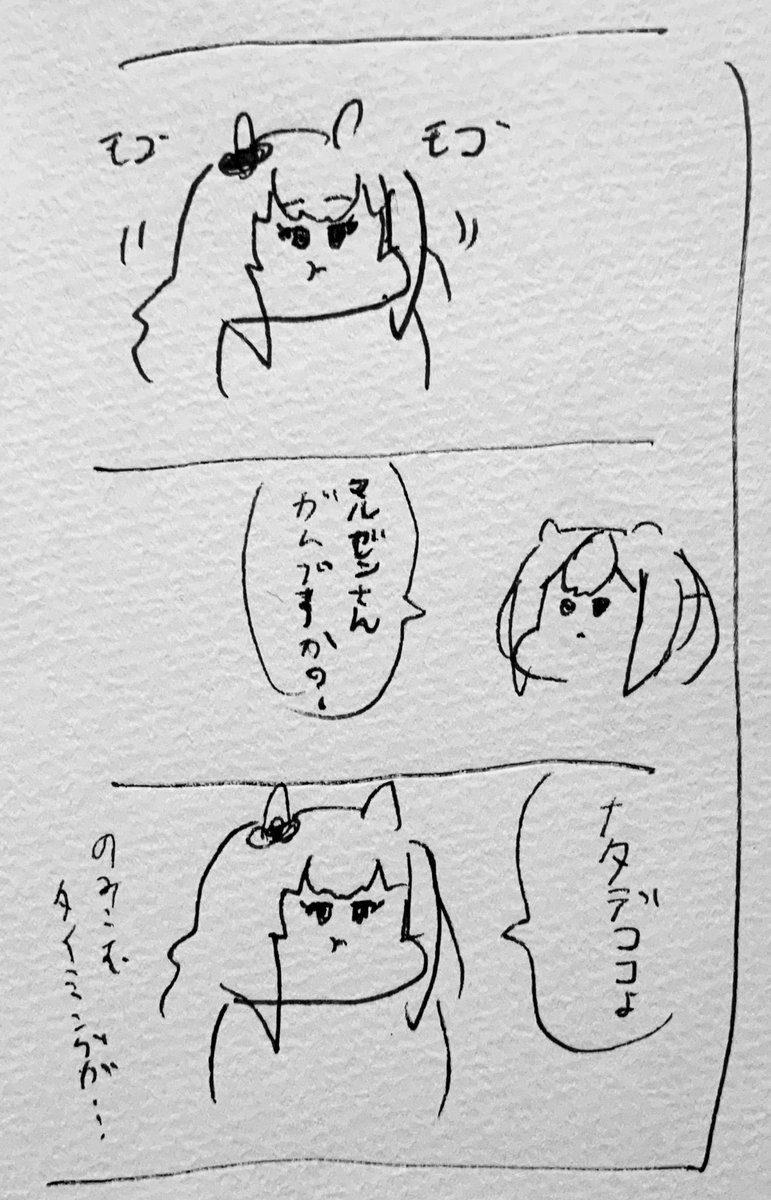 モゴ
モゴ
マルゼンさん
ガムですかの
ナタデココよ
のみこむ
タイミングが…